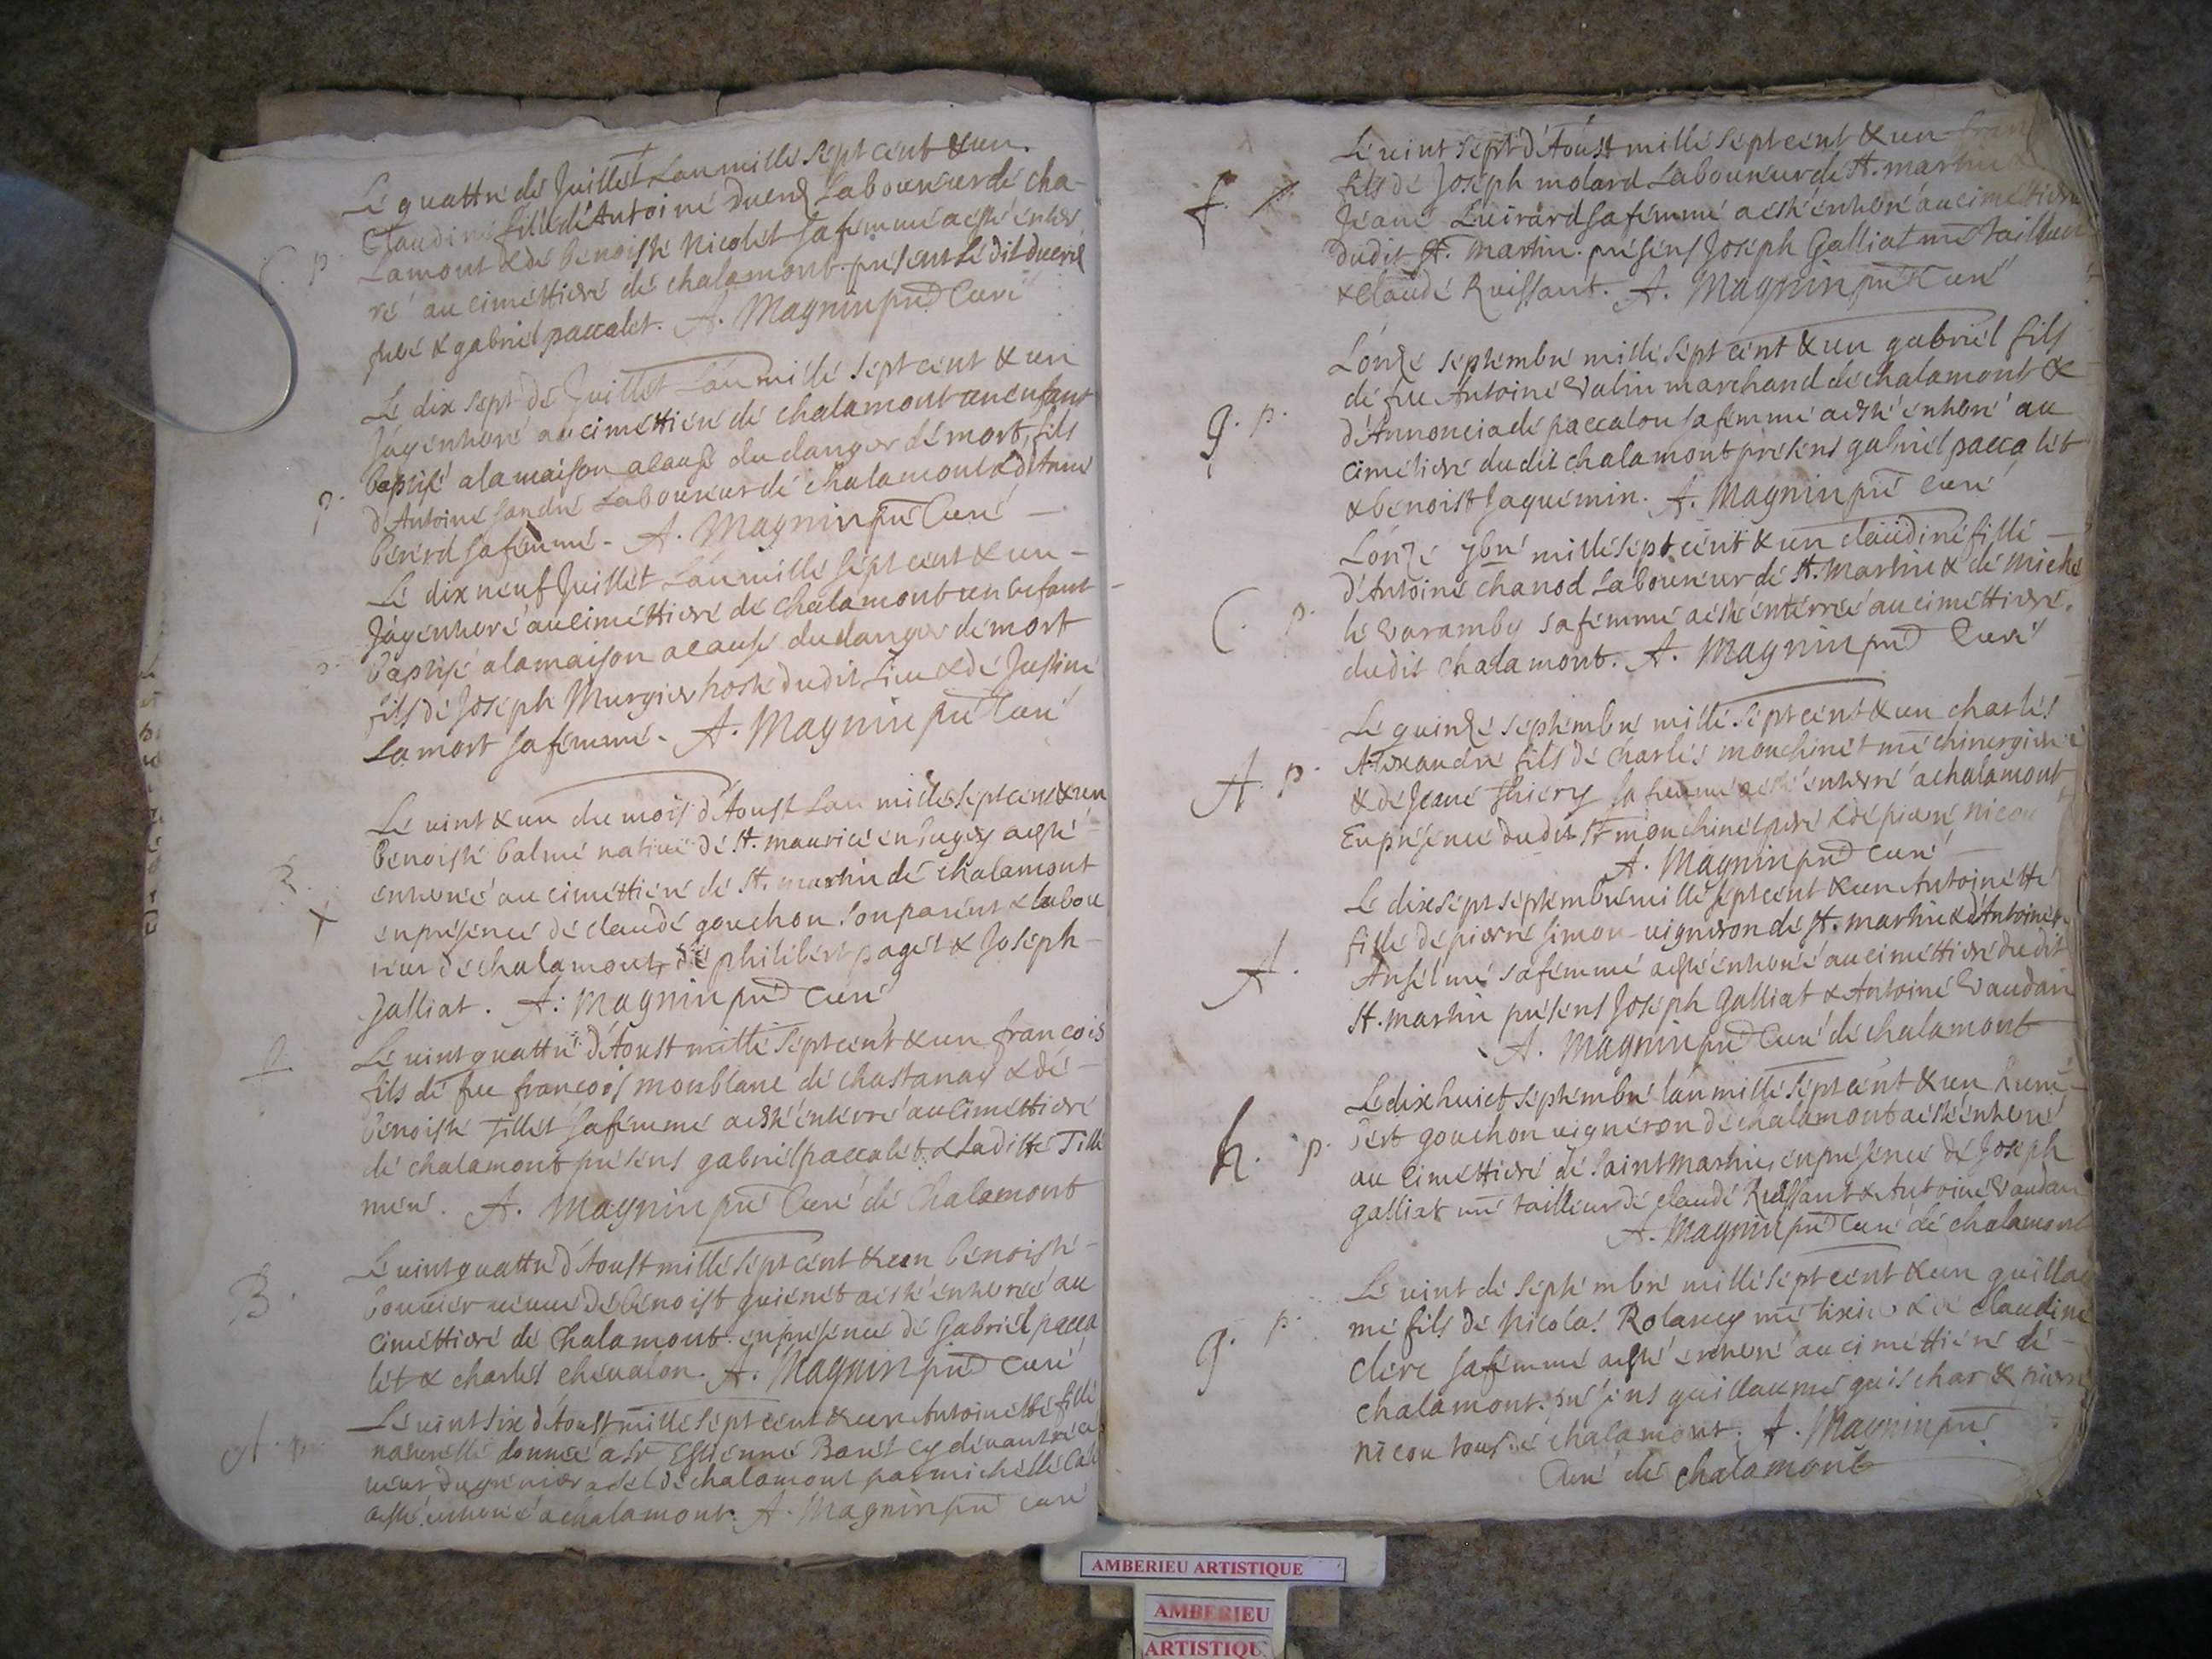 Le quattre de Juillet L'an mille sept cent & un
Claudine fille d'Antoine Laboureur de cha-
Lamont & de benoiste Nicolet sa femme a esté enter
ré au cimettiere de chalamont. présent Le dit
& gabriel paccalet. A. Magnin pre Curé
p.
Le dix sept de Juillet L'an mille sept cent & un
J'ay enterré au cimettiere de chalamont un enfant
baptisé a la maison a cause du danger de mort, fils
d'Antoine Laboureur de chalamont &
berrd sa femme. A. Magnin pre Curé
p.
Le dix neuf Juillet L'an mille sept cent & un
J'ay enterré au cimettiere de chalamont un enfant
baptisé a la maison a cause du danger de mort
fils de Joseph Murgier hoste dudit Lieu & de Justine
Lamort sa femme. A. Magnin pre Curé
Le vint & un du mois d'Aoust L'an mille sept cent & un
benoiste balme native de St. maurice en bugey a esté
enterrée au cimettiere de St. martin de chalamont
en présence de claude gouchon son parent & labou
reur de chalamont, de philibert paget & Joseph
galliat. A. Magnin pre Curé
Le vint quattre d'Aoust mille sept cent & un francois
fils de feu francois monblanc de chastanay & de
benoiste Tillet sa femme a esté enterré au Cimettiere
de chalamont présens gabriel paccalet & Laditte Tille
mere. A. Magnin pre Curé de Chalamont
B.
Le vint quattre d'Aoust mille sept cent & un benoiste
bouvier veuve de benoist guienet a esté enterrée au
Cimettiere de Chalamont en présence de Gabriel pacca
let & charles chevalon. A. Magnin pre Curé
A. p.
Le vint six d'Aoust mille sept cent & un Antoinette fille
naturelle donnée a Sr Estienne cy devant
du grenier a sel de chalamont par michelle
a esté enterré a chalamont. A. Magnin pre Curé
f.
Le vint sept d'Aoust mille sept cent & un
fils de Joseph molard Laboureur de St. martin &
Jeane Luirard sa femme a esté enterré au cimettiere
dudit St. martin. présens Joseph Galliat me tailleur
& Claude Ruissant. A. Magnin pre Curé
g. p.
L'onze septembre mille sept cent & un gabriel fils
de feu Antoine Valin marchand de chalamont &
d'Annonciade paccalon sa femme a esté enterré au
cimetiere dudit chalamont présens gabriel paccalet
& benoist Jaquemin. A. Magnin pre Curé
C. p.
L'onze 7bre mille sept cent & un claudine fille
d'Antoine chanod Laboureur de St. Martin & de Miche
le Varamby sa femme a esté enterrée au cimettiere
dudit chalamont. A. Magnin pre Curé
A. p.
Le quinze septembre mille sept cent & un charles
Alexandre fils de Charles mouchinet me chirurgien
& de Jeane thiery sa femme a esté enterré a chalamont
En présence dudit Sr mouchinet pere & de pierre nicou
A. Magnin pre Curé
A.
Le dix sept septembre mille sept cent & un Antoinette
fille de pierre simon vigneron de St. martin & d'Antoinete
Anselme sa femme a esté enterrée au cimettiere dudit
St. martin présens Joseph Galliat & Antoine Vaudan
A. Magnin pre Curé de chalamont
h. p.
Le dix huict septembre l'an mille sept cent & un hum-
bert gouchon vigneron de chalamont a esté enterré
au Cimettiere de saint martin, en présence de Joseph
galliat me tailleur de claude Ruissant & Antoine Vaudan
A. Magnin pre Curé de chalamont
g. p.
Le vint de septembre mille sept cent & un guillau
me fils de Nicolas Rolancy me tixier & de Claudine
Clerc sa femme a esté enterré au cimettiere de
chalamont. présens guillaume guischar & pierre
nicou tous de chalamont. A. Magnin pre
Curé de chalamont
AMBERIEU ARTISTIQUE
AMBERIEU
ARTISTIQU